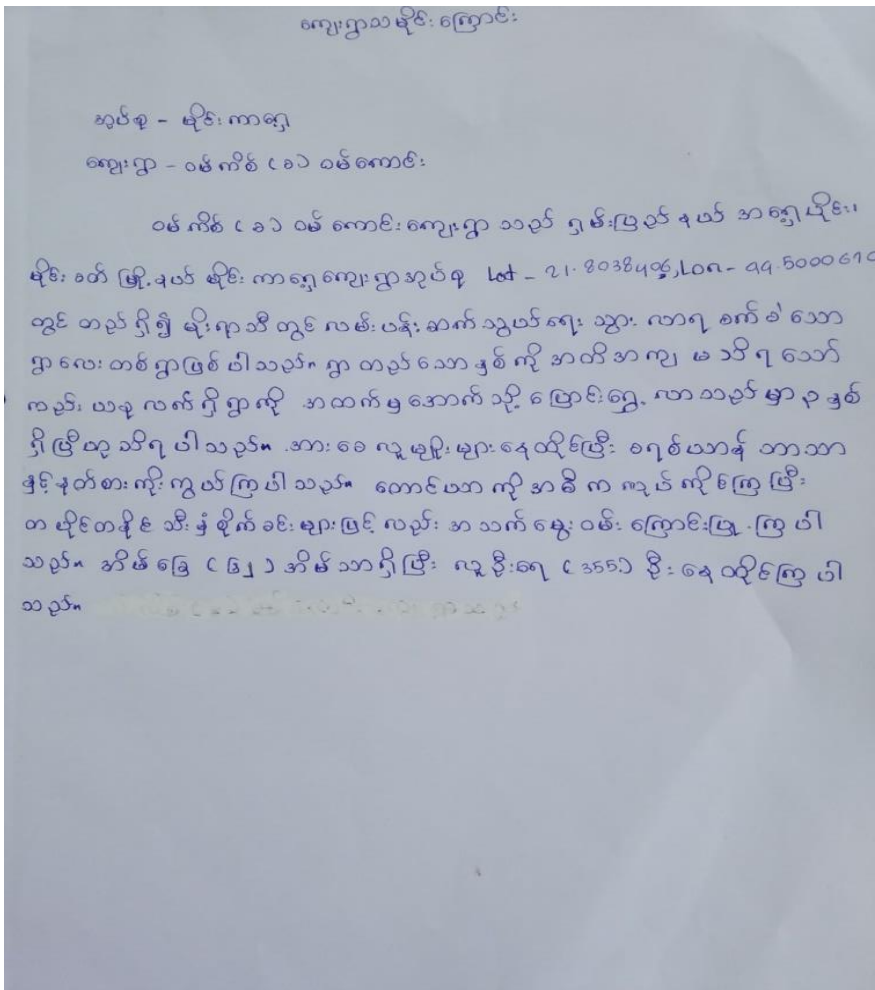 ကျေးရွာသမိုင်းကြောင်း
အုပ်စု - မိုင်းကာရှေ့
ကျေးရွာ - ဝမ်ကိစ် (ခ) ဝမ်ကောင်း
ဝမ်ကိစ် (ခ) ဝမ်ကောင်းကျေးရွာ သည် ရှမ်းပြည်နယ် အရှေ့ပိုင်း၊
မိုင်းခတ်မြို့နယ် မိုင်းကာရှေ့ကျေးရွာအုပ်စု Lat - 21.8038406, Lon - 99.5000610
တွင် တည်ရှိ၍ မိုးရာသီတွင် လမ်းပန်းဆက်သွယ်ရေး သွားလာရ ခက်ခဲသော
ရွာလေးတစ်ရွာဖြစ်ပါသည်။ ရွာတည်သောနှစ်ကို အတိအကျ မသိရသော်
လည်း ယခုလက်ရှိရွာကို အထက်မှအောက်သို့ ပြောင်းရွှေ့လာသည်မှာ ၃ နှစ်
ရှိပြီဟု သိရပါသည်။ အားခေလူမျိုးများနေထိုင်ပြီး ခရစ်ယာန် ဘာသာ
နှင့်နတ်စားကိုးကွယ်ကြပါသည်။ တောင်ယာကို အဓိကလုပ်ကိုင်ကြပြီး
တပိုင်တနိုင် သီးနှံစိုက်ခင်းများဖြင့် လည်း အသက်မွေးဝမ်းကြောင်းပြုကြပါ
သည်။ အိမ်ခြေ ( ၆၂ ) အိမ်သာရှိပြီး လူဦးရေ ( 355 ) ဦး နေထိုင်ကြပါ
သည်။